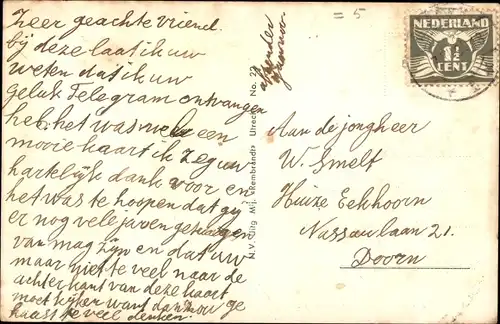 Zeer geachte vriend.
bij deze laat ik uw
weten dat ik uw
geluk Telegram ontvangen
heb het was wel een
mooie kaart ik zeg uw
hartelijk dank voor en
het was te hoopen dat gij
er nog vele jaren getuigen
van mag zijn en dat uw
maar niet te veel naar de
achterkant van deze kaart
moet kijken want dan zou ge
haast te veel denken.
= 5
afzender
N.V. Uitg Mij. «Rembrandt» Utrecht No. 22
NEDERLAND
1½
CENT
Aan de jongheer
W. Smelt
Huize Eekhoorn
Nassaulaan 21.
Doorn